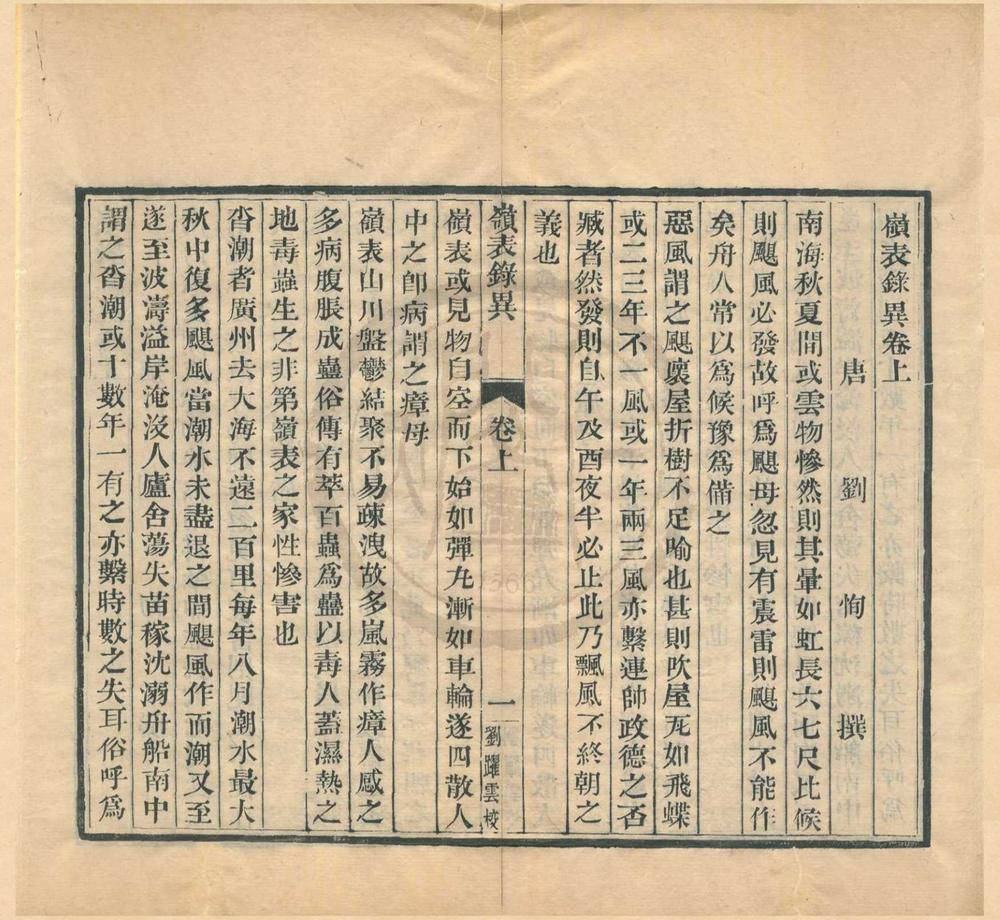 嶺表錄異卷上
唐 劉 恂 撰
南海秋夏間或雲物慘然則其暈如虹長六七尺比候
則颶風必發故呼爲颶母忽見有震雷則颶風不能作
矣舟人常以爲候豫爲備之
惡風謂之颶壞屋折樹不足喻也甚則吹屋瓦如飛蝶
或二三年不一風或一年兩三風亦繫連帥政德之否
臧者然發則自午及酉夜半必止此乃飄風不終朝之
義也
嶺表錄異 卷上 一 劉躍雲校
嶺表或見物自空而下始如彈丸漸如車輪遂四散人
中之卽病謂之瘴母
嶺表山川盤鬱結聚不易疎洩故多嵐霧作瘴人感之
多病腹脹成蠱俗傳有萃百蟲爲蠱以毒人蓋濕熱之
地毒蟲生之非第嶺表之家性慘害也
沓潮者廣州去大海不遠二百里每年八月潮水最大
秋中復多颶風當潮水未盡退之間颶風作而潮又至
遂至波濤溢岸淹沒人廬舍蕩失苗稼沈溺舟船南中
謂之沓潮或十數年一有之亦繫時數之失耳俗呼爲